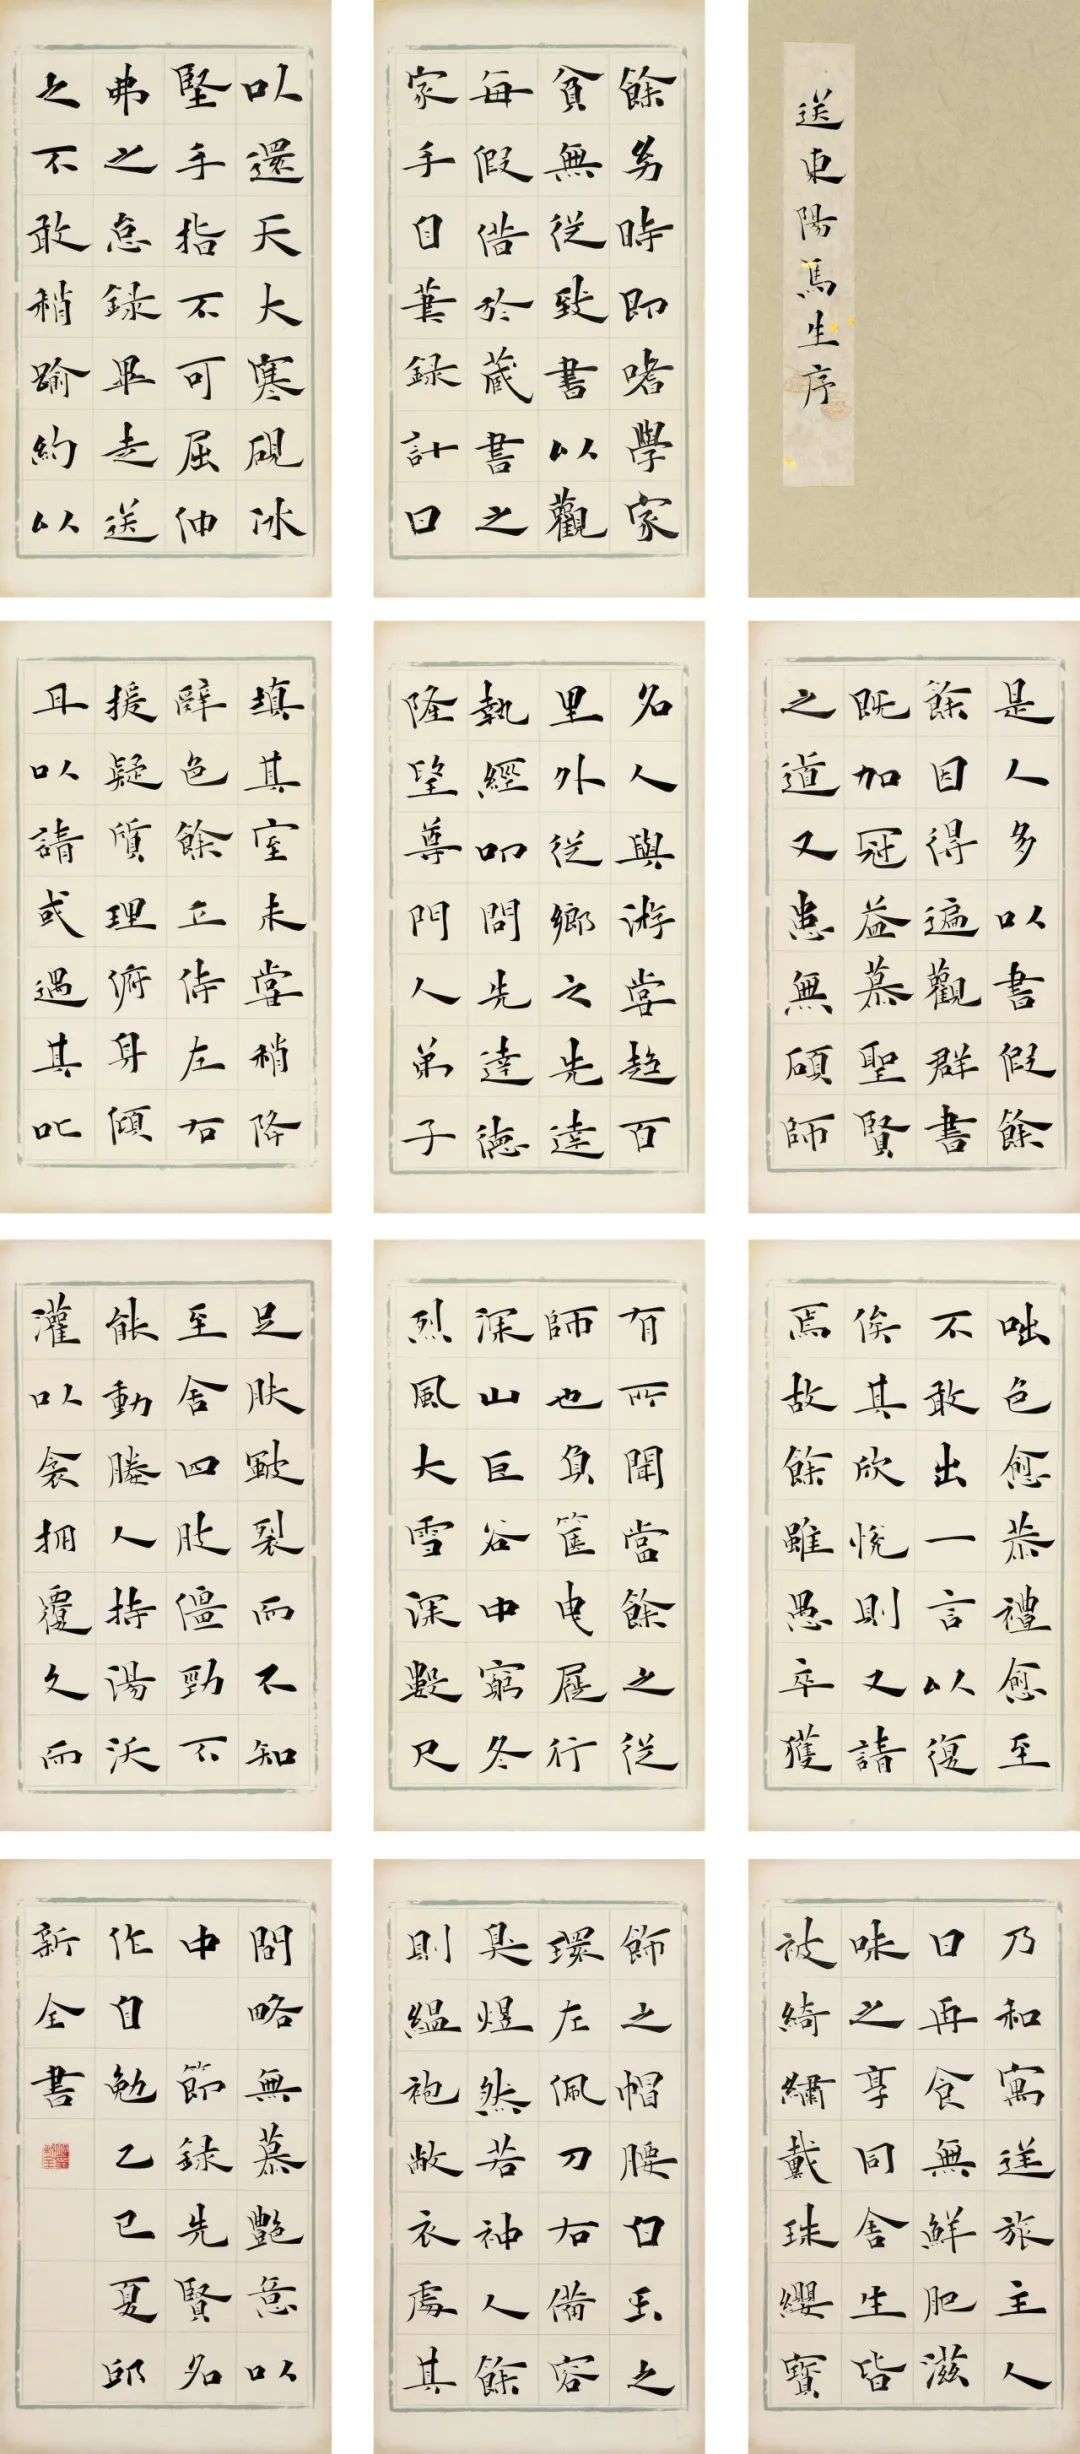 送東陽馬生序
餘幼時即嗜學家
貧無從致書以觀
每假借於藏書之
家手自筆錄計日
以還天大寒硯冰
堅手指不可屈伸
弗之怠錄畢走送
之不敢稍踰約以
是人多以書假餘
餘因得遍觀群書
既加冠益慕聖賢
之道又患無碩師
名人與游嘗趨百
里外從鄉之先達
執經叩問先達德
隆望尊門人弟子
填其室未嘗稍降
辭色餘立侍左右
援疑質理俯身傾
耳以請或遇其叱
咄色愈恭禮愈至
不敢出一言以復
俟其欣悅則又請
焉故餘雖愚卒獲
有所聞當餘之從
師也負篋曳屣行
深山巨谷中窮冬
烈風大雪深數尺
足肤皸裂而不知
至舍四肢僵勁不
能動媵人持湯沃
灌以衾拥覆久而
乃和寓逆旅主人
日再食無鮮肥滋
味之享同舍生皆
被綺繡戴珠纓寶
飾之帽腰白玉之
環左佩刀右備容
臭煜然若神人餘
則縕袍敝衣處其
間略無慕艷意以
中 節錄先賢名
作自勉乙巳夏邱
新全書